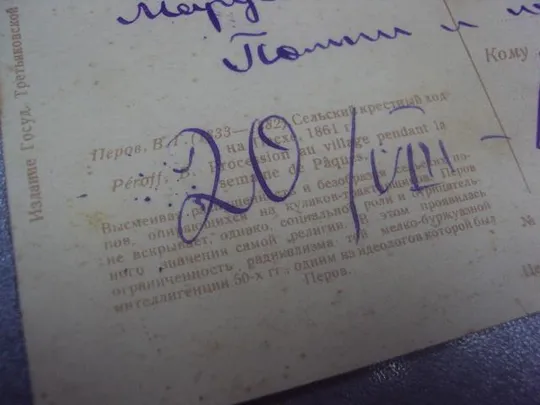 Мару
Помни и
Кому
Издание Госуд. Третьяковской
Перов, В. Г. (1833—1882) Сельский крестный ход
на Пасхе, 1861 г.
Péroff, B. Procession au village pendant la
semaine de Pâques.
20/VIII –
Высмеивая и безобразия сельских по-
пов, опиравшихся на кулаков-трактирщиков, Перов
не вскрывает, однако, социальной роли и отрицатель-
ного значения самой религии. В этом проявилась
ограниченность радикализма той мелко-буржуазной
интеллигенции 60-х гг., одним из идеологов которой был
Перов.
№
Це